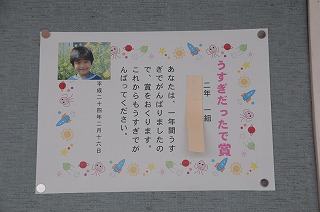 うすぎだったで賞
二年 一組
あなたは、一年間うす
ぎでがんばりましたの
で、賞をおくります。
これからもうすぎでが
んばってください。
平成二十四年二月十六日